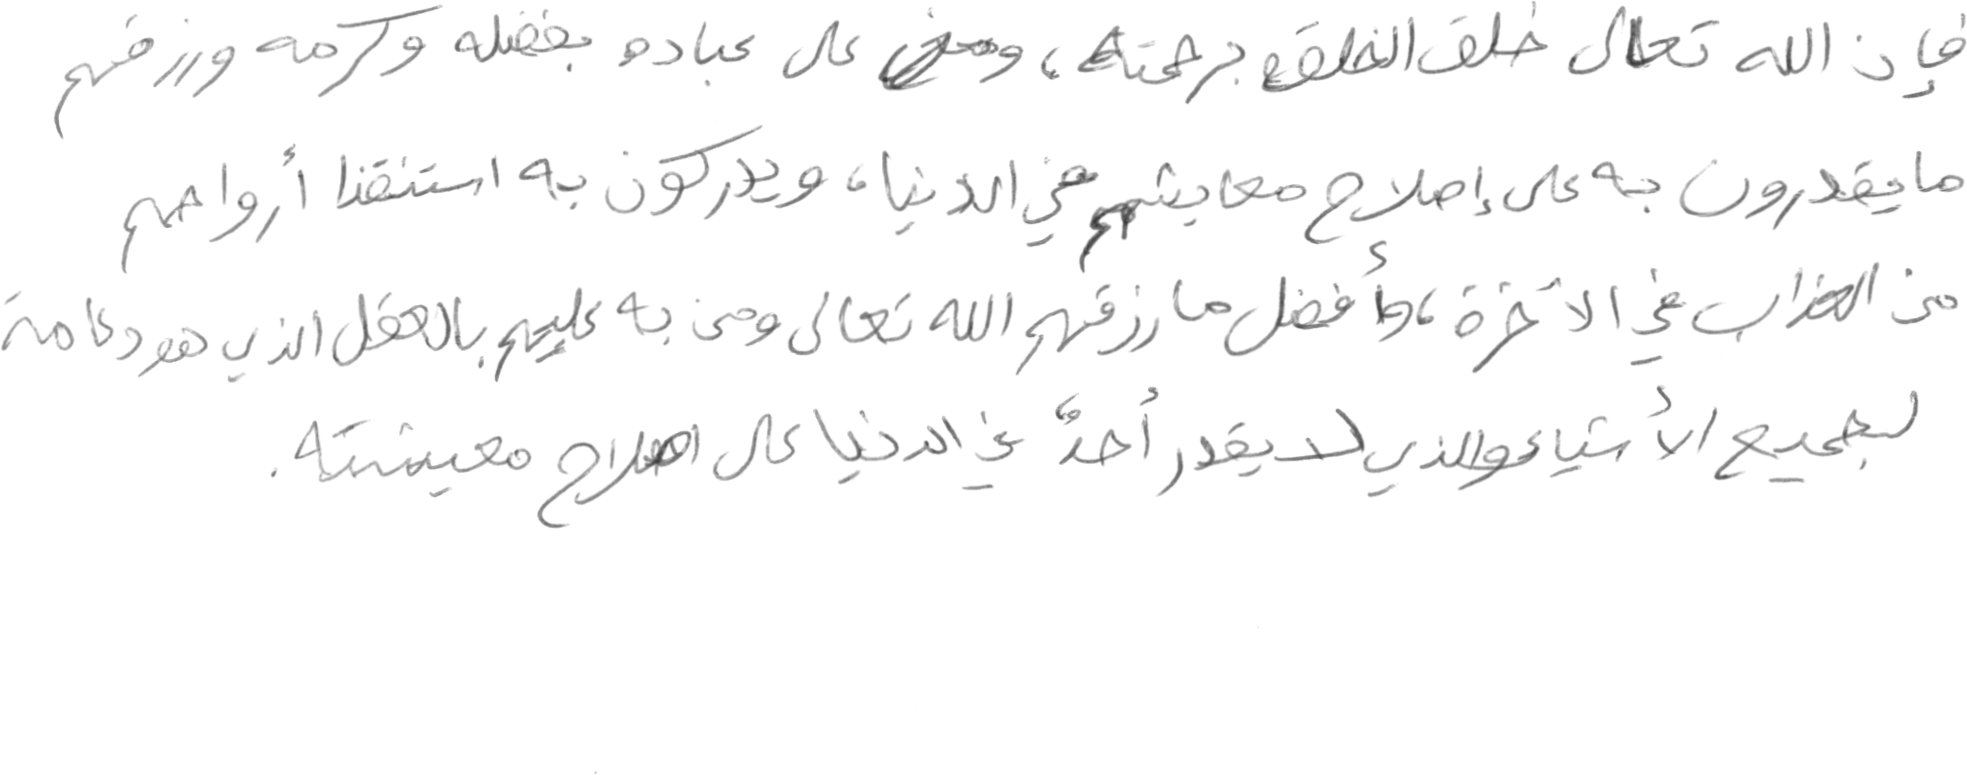 فإن الله تعالى خلق الخلق برحمته، ومن على عباده بفضله وكرمه ورزقهم
ما يقدرون به على إصلاح معايشهم في الدنيا، ويدركون به استنقنا أرواحهم
من العذاب في الآخرة، وأفضل ما رزقهم الله تعالى ومن به عليهم بالعقل الذي هو دعامة
لجميع الأشياء والذي لا يقدر أحدٌ في الدنيا على اصلاح معيشته.